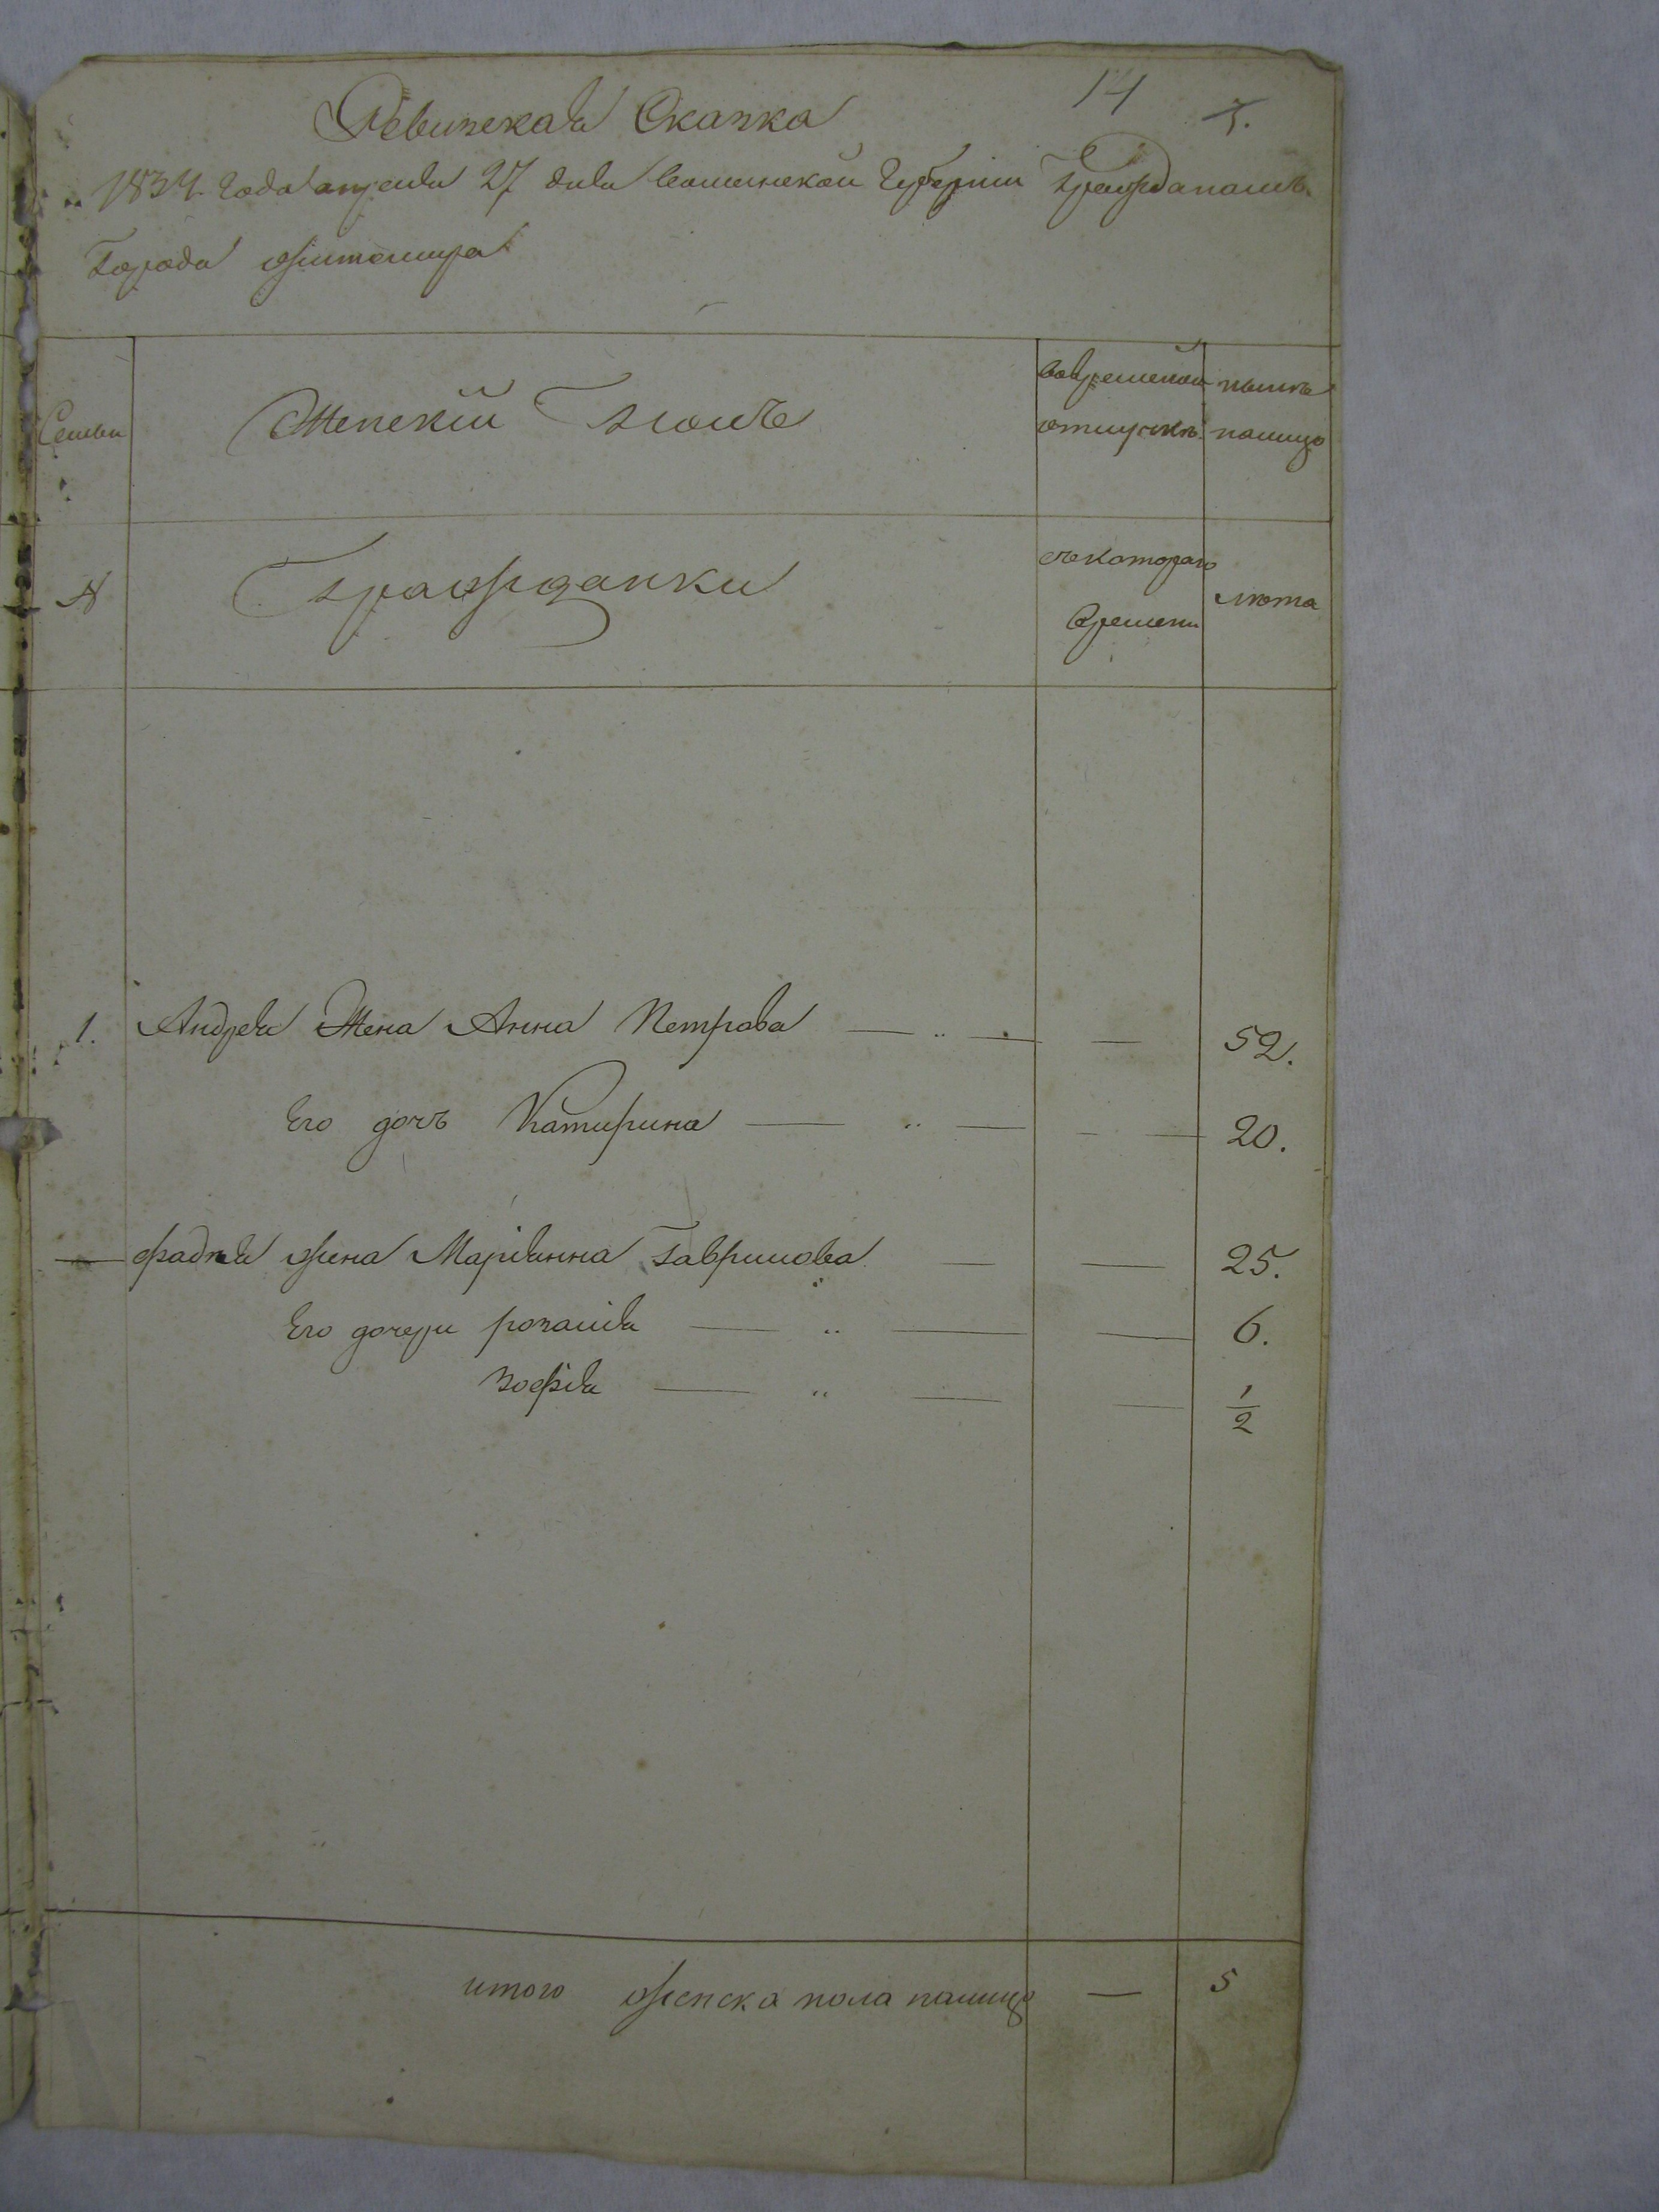 14 7.
Ревизская Сказка
1834 года апреля 27 дня Волынской Губернии Гражданомъ
Города Житомира
Семьи
Женскій Полъ
Во временной отлучкѣ
нынѣ на лицо
№
Гражданки
съ котораго времени
лѣта
1. Андрея Жена Анна Петрова — " — — 52.
Его дочь Катирина — " — — — 20.
— Фадѣя жена Маріянна Гаврилова — — 25.
Его дочери розалія — " — — 6.
зофія — " — — 1/2
итого женска пола налицо — 5